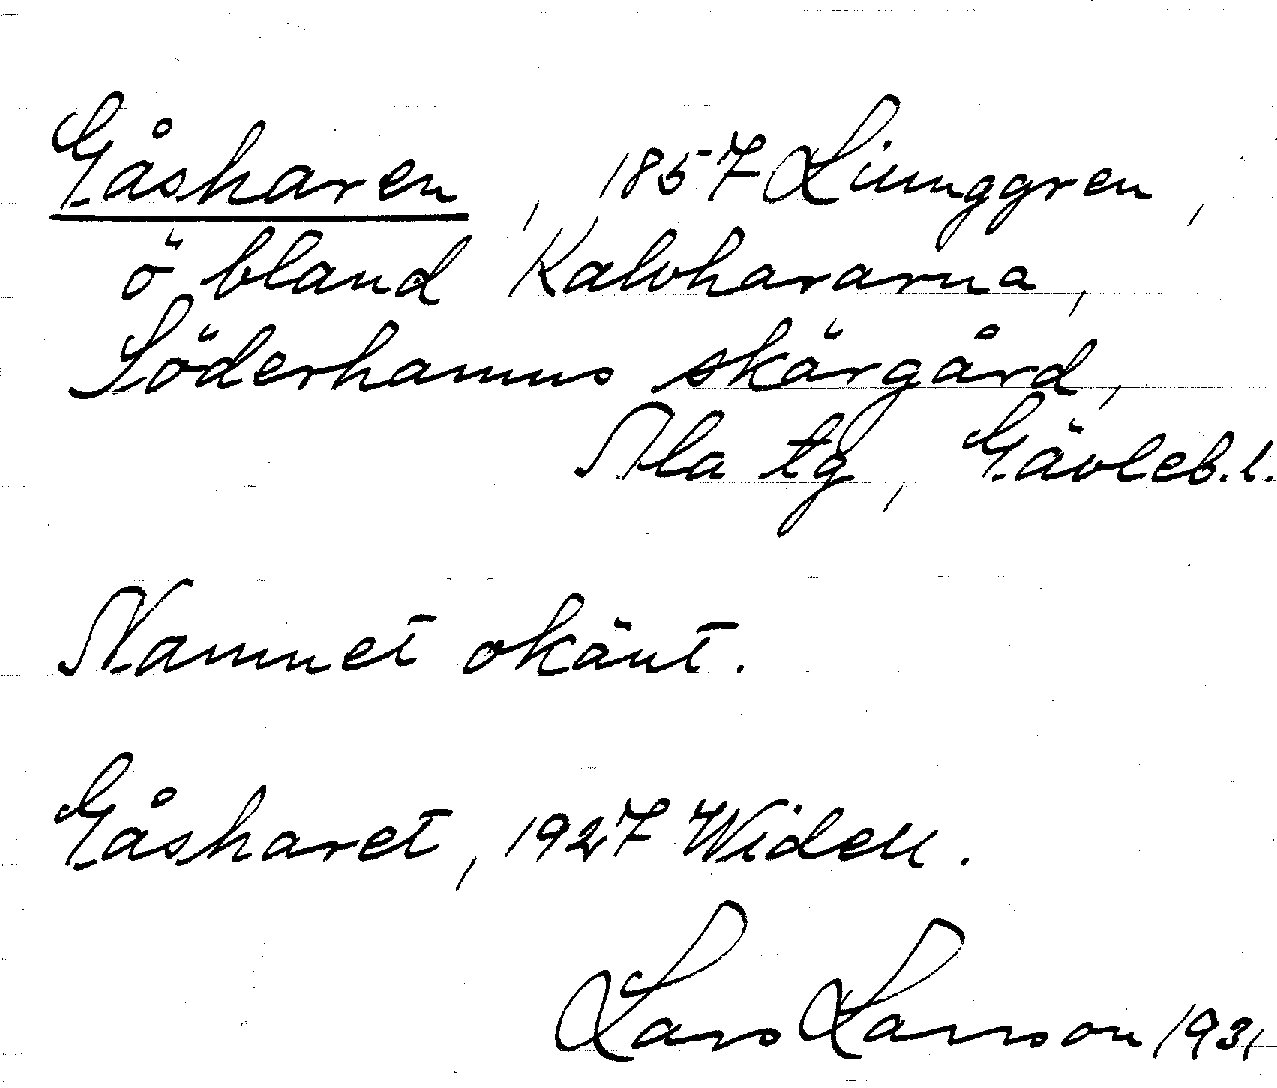 Gåsharen, 1857 Liunggren,
ö bland Kalvhararna,
Söderhamns skärgård,
Ala tg, Gävleb.l.
Namnet okänt.
Gåsharet, 1927 Widell.
Lars Larsson 1931